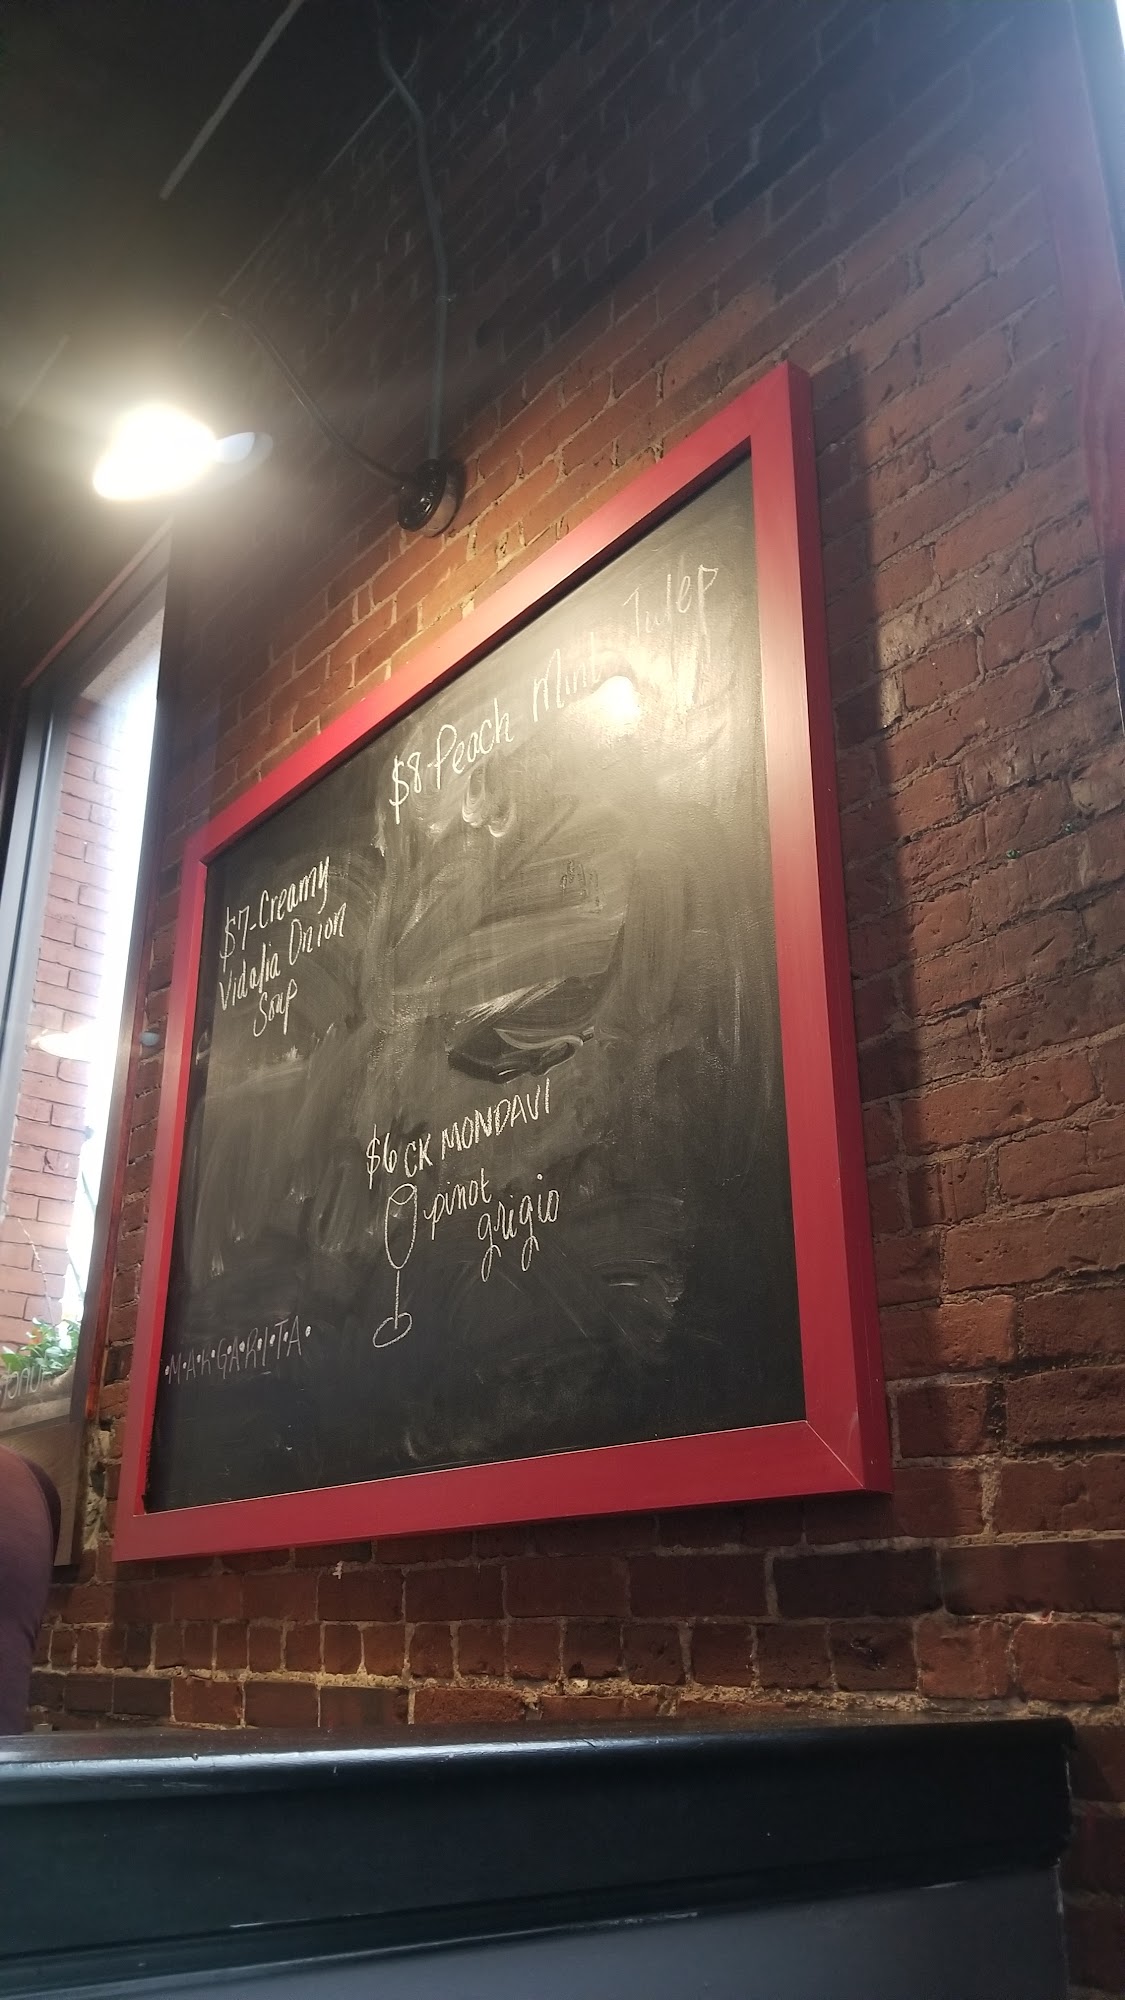 $8-Peach Mint Julep
$7-Creamy
Vidalia Onion
Soup
$6 CK MONDAVI
pinot
grigio
•M•A•R•G•A•R•I•T•A•